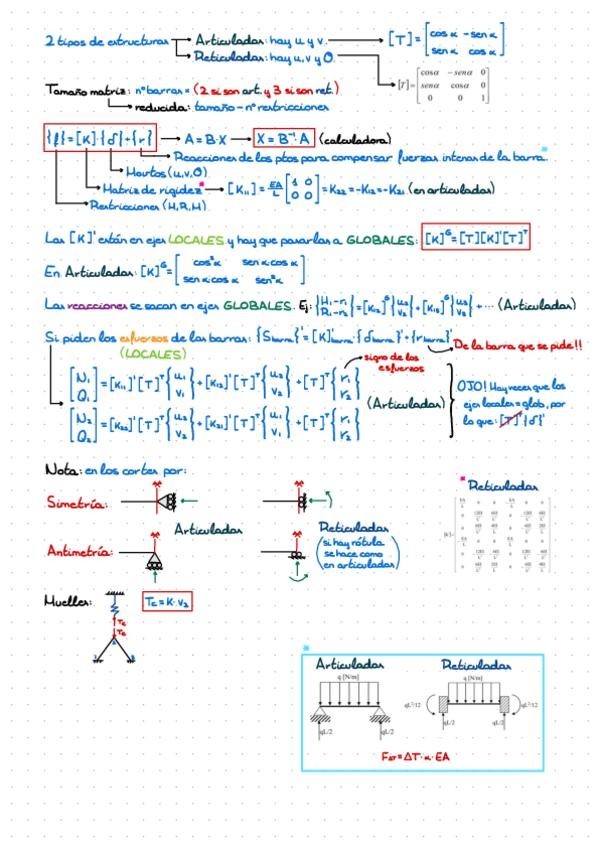 2 tipos de estructuras → Articuladas: hay u y v. → [T] = [cos α -sen α; sen α cos α]
→ Reticuladas: hay u, v y θ. → [T] = [cosα -senα 0; senα cosα 0; 0 0 1]
Tamaño matriz: nº barras × (2 si son art. y 3 si son ret.)
→ reducida: tamaño - nº restricciones
{f} = [K]·{δ} + {r} → A = B·X → X = B⁻¹·A (calculadora)
Reacciones de los ptos para compensar fuerzas intenas de la barra.*
Movtos (u, v, θ)
Matriz de rigidez* → [K₁₁] = EA/L [1 0; 0 0] = K₂₂ = -K₁₂ = -K₂₁ (en articuladas)
Restricciones (H, R, M)
Las [K]' están en ejes LOCALES y hay que pasarlas a GLOBALES: [K]ᴳ = [T][K]'[T]ᵀ
En Articuladas: [K]ᴳ = [cos²α senα·cosα; senα·cosα sen²α]
Las reacciones se sacan en ejes GLOBALES. Ej: {H₁-r₁; R₁-r₂} = [K₁₂]ᴳ {u₂; v₂} + [K₁₃]ᴳ {u₃; v₃} + ... (Articuladas)
Si piden los esfuerzos de las barras: {S barra}' = [K]' barra · {δ barra}' + {r barra}'
(LOCALES)
De la barra que se pide!!
signo de los
esfuerzos
[N₁; Q₁] = [K₁₁]'[T]ᵀ {u₁; v₁} + [K₁₂]'[T]ᵀ {u₂; v₂} + [T]ᵀ {r₁; r₂}
(Articuladas)
[N₂; Q₂] = [K₂₂]'[T]ᵀ {u₂; v₂} + [K₂₁]'[T]ᵀ {u₁; v₁} + [T]ᵀ {r₁; r₂}
OJO! Hay veces que los
ejes locales = glob, por
lo que: [T]ᵀ{δ}'
Nota: en los cortes por:
Simetría:
Articuladas
Reticuladas
(si hay rótula
se hace como
en articuladas)
Antimetría:
* Reticuladas
Muelles:
Tc = K·v₂
Tc
Tc
*
Articuladas
Reticuladas
q [N/m]
q [N/m]
qL²/12
qL²/12
qL/2
qL/2
qL/2
qL/2
F_ΔT = ΔT·α·EA